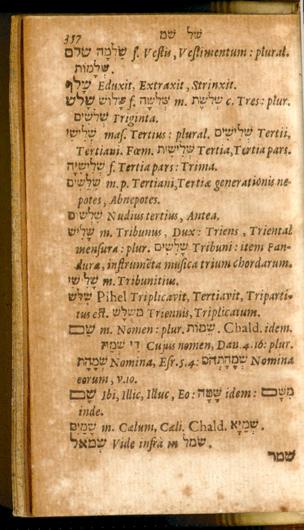 357 שׁל שׁמ
שׂלם שַׂלְמָה f. Vestis, Vestimentum : plural.
שְׂלָמוֹת.
שלף Eduxit, Extraxit, Strinxit.
שלש שָׁלוֹשׁ f. שְׁלֹשָׁה m. שְׁלֹשֶׁת c. Tres : plur.
שְׁלֹשִׁים Triginta.
שְׁלִישִׁי mas. Tertius : plural. שְׁלִישִׁים Tertii,
Tertiani. Fœm. שְׁלִישִׁית Tertia, Tertia pars.
שְׁלִישִׁיָּה f. Tertia pars : Trima.
שִׁלֵּשִׁים m.p. Tertiani, Tertiæ generationis ne-
potes, Abnepotes.
שִׁלְשׁוֹם Nudius tertius, Antea.
שָׁלִישׁ m. Tribunus, Dux : Triens, Triental
mensura : plur. שָׁלִישִׁים Tribuni : item Fan-
duræ, instrumēta musica trium chordarum.
שָׁלִישִׁי m. Tribunitius.
שִׁלֵּשׁ Pihel Triplicavit, Tertiavit, Triparti-
tus est. מְשֻׁלָּשׁ Triennis, Triplicatum.
שֵׁם m. Nomen : plur. שֵׁמוֹת. Chald. idem.
דִּי שְׁמֵהּ Cujus nomen, Dan. 4. 16: plur.
שְׁמָהָת Nomina, Esr. 5. 4: שְׁמָהָתְהֹם Nomina
eorum, v. 10.
שָׁם Ibi, Illic, Illuc, Eo : שָׁמָּה idem : מִשָּׁם
inde.
שָׁמַיִם m. Cælum, Cæli. Chald. שְׁמַיָּא.
שמאל Vide infrà in שׂמל.
שמר